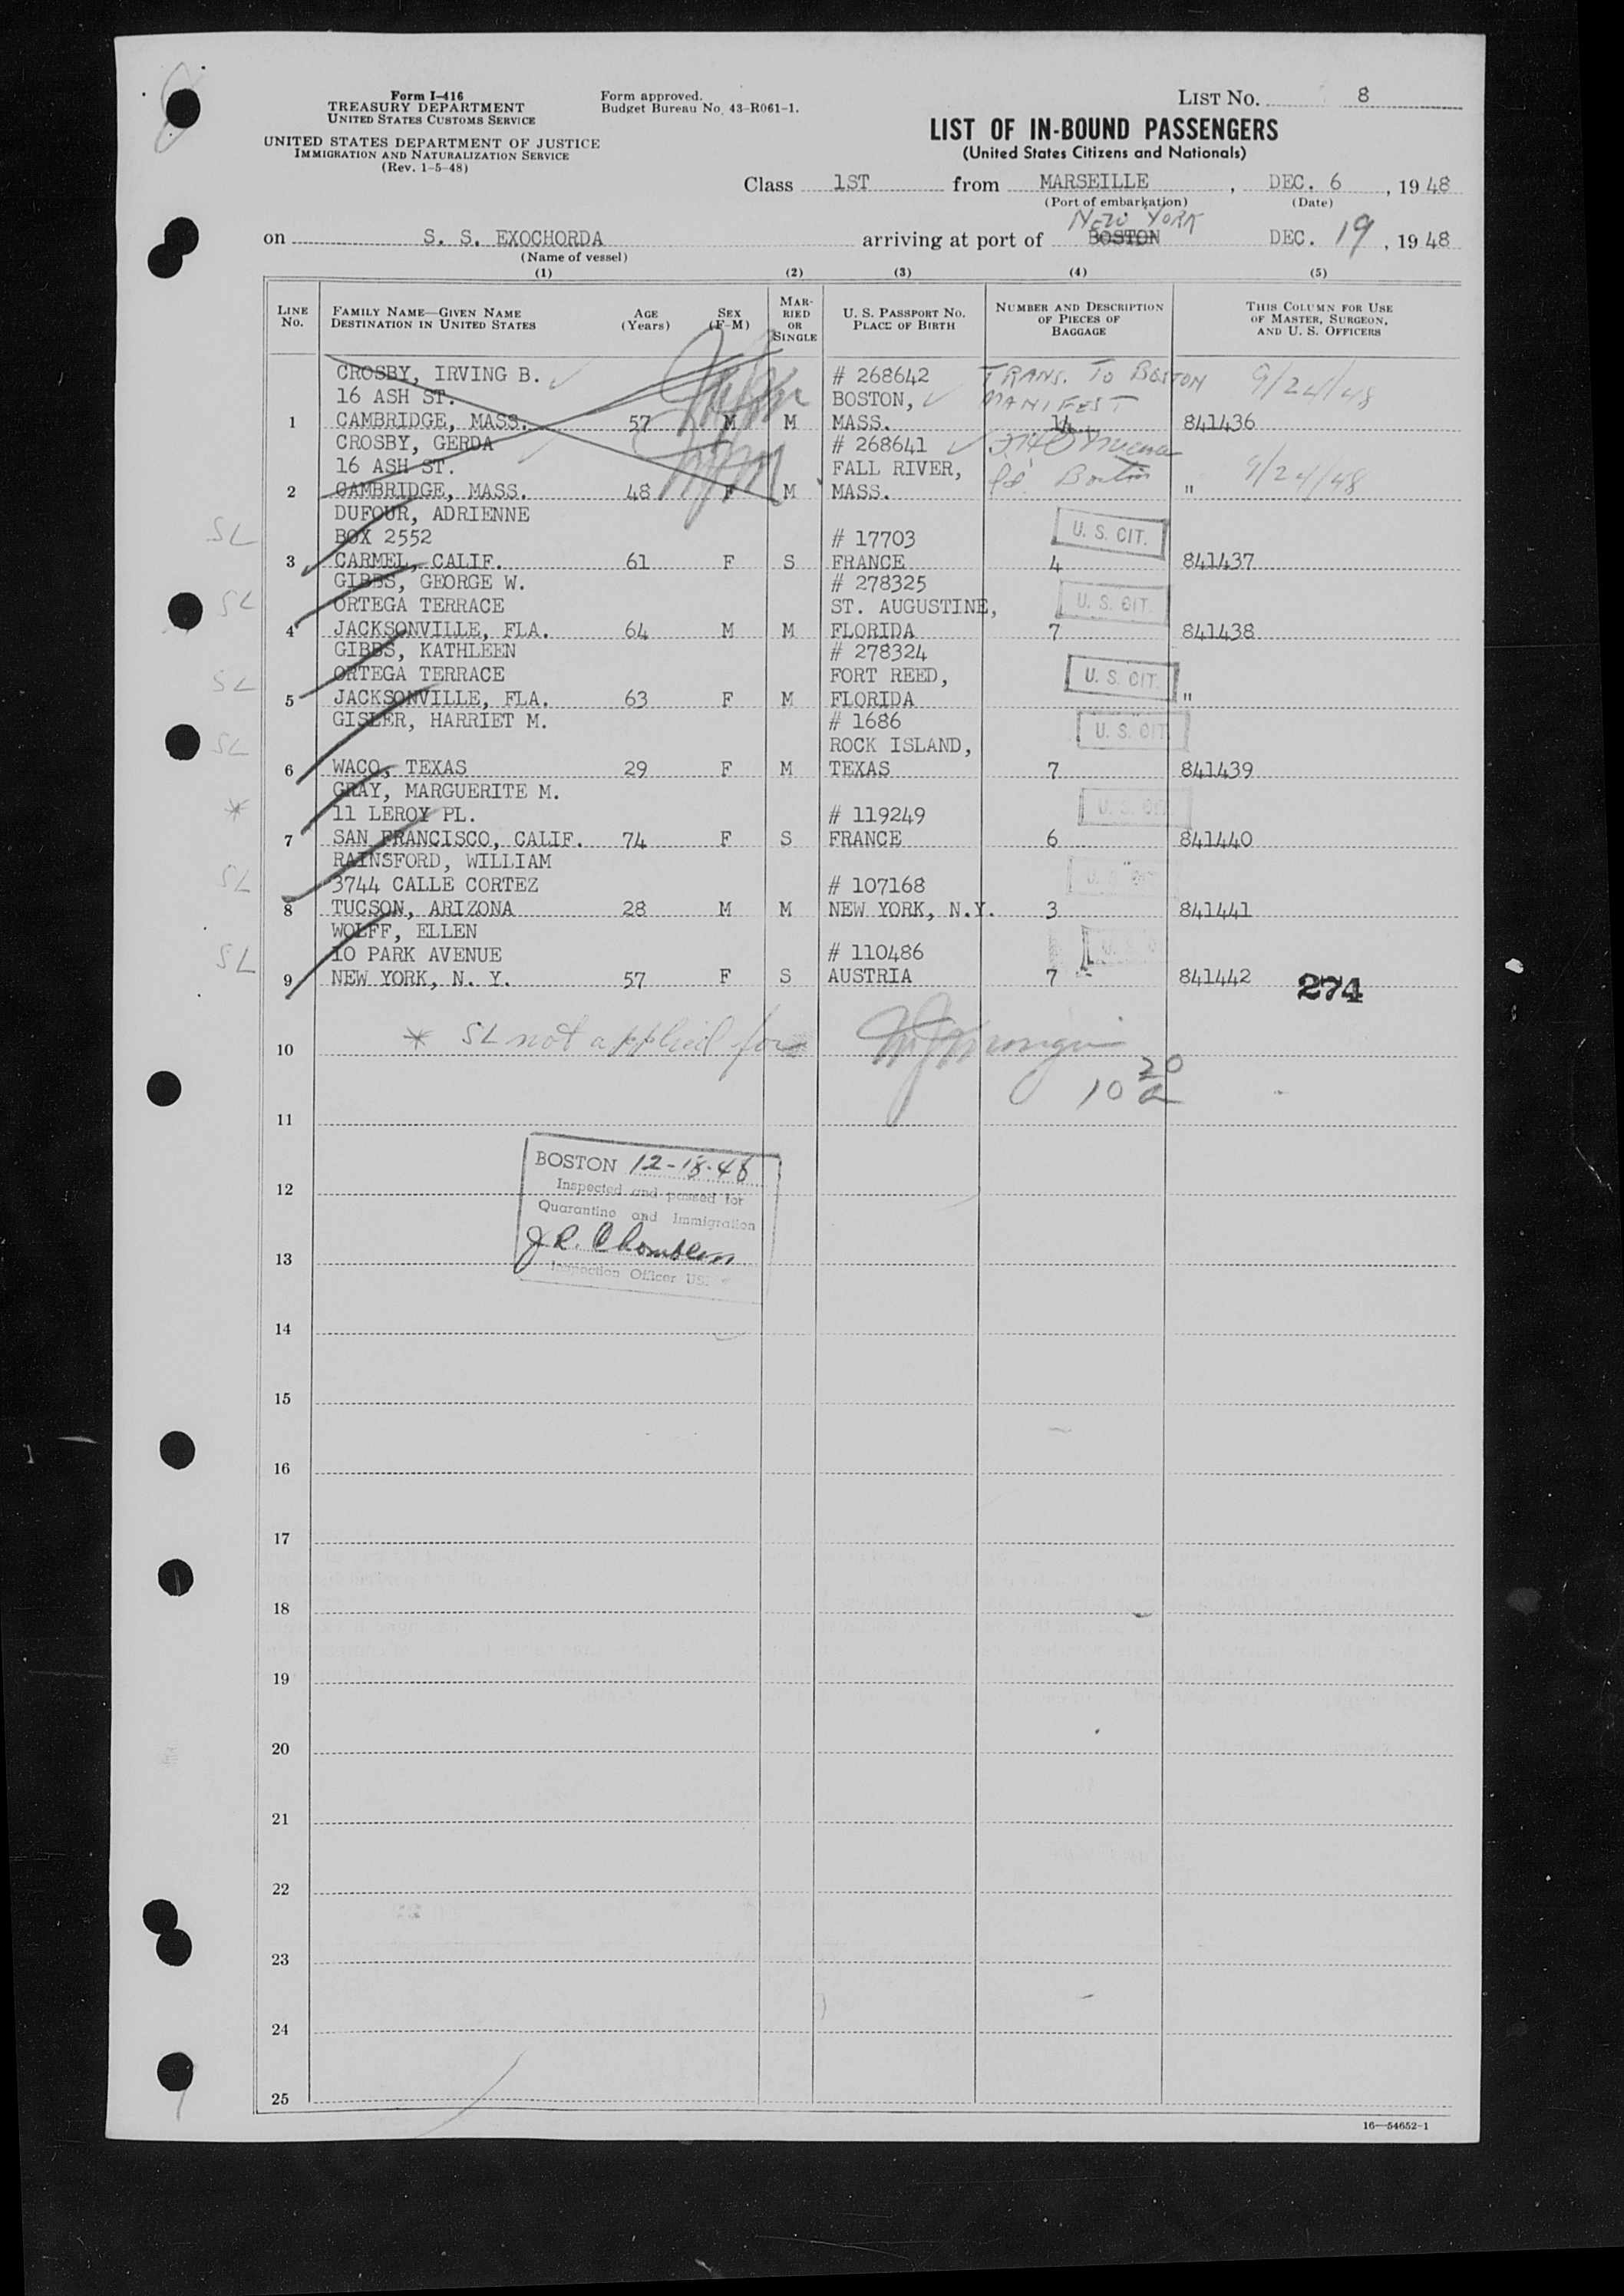 Form I-416
TREASURY DEPARTMENT
UNITED STATES CUSTOMS SERVICE
UNITED STATES DEPARTMENT OF JUSTICE
IMMIGRATION AND NATURALIZATION SERVICE
(Rev. 1-5-48)
Form approved.
Budget Bureau No. 43-R061-1.
LIST NO. 8
LIST OF IN-BOUND PASSENGERS
(United States Citizens and Nationals)
Class 1ST from MARSEILLE, DEC. 6, 1948
(Port of embarkation) (Date)
NEW YORK
on S. S. EXOCHORDA arriving at port of BOSTON DEC. 19, 1948
(Name of vessel)
(1) (2) (3) (4) (5)
LINE NO.
FAMILY NAME—GIVEN NAME
DESTINATION IN UNITED STATES
AGE (Years)
SEX (F-M)
MARRIED OR SINGLE
U. S. PASSPORT NO.
PLACE OF BIRTH
NUMBER AND DESCRIPTION OF PIECES OF BAGGAGE
THIS COLUMN FOR USE OF MASTER, SURGEON, AND U. S. OFFICERS
CROSBY, IRVING B. # 268642 TRANS. TO BOSTON 9/24/48
16 ASH ST. BOSTON, MANIFEST
1 CAMBRIDGE, MASS. 57 M M MASS. 14 841436
CROSBY, GERDA # 268641
16 ASH ST. FALL RIVER, Boston 9/24/48
2 CAMBRIDGE, MASS. 48 F M MASS. "
DUFOUR, ADRIENNE
SL BOX 2552 # 17703 U. S. CIT.
3 CARMEL, CALIF. 61 F S FRANCE 4 841437
GIBBS, GEORGE W. # 278325
SL ORTEGA TERRACE ST. AUGUSTINE, U. S. CIT.
4 JACKSONVILLE, FLA. 64 M M FLORIDA 7 841438
GIBBS, KATHLEEN # 278324
SL ORTEGA TERRACE FORT REED, U. S. CIT.
5 JACKSONVILLE, FLA. 63 F M FLORIDA "
GISLER, HARRIET M. # 1686 U. S. CIT
SL ROCK ISLAND,
6 WACO, TEXAS 29 F M TEXAS 7 841439
GRAY, MARGUERITE M.
* 11 LEROY PL. # 119249 U. S. CIT
7 SAN FRANCISCO, CALIF. 74 F S FRANCE 6 841440
RAINSFORD, WILLIAM
SL 3744 CALLE CORTEZ # 107168
8 TUCSON, ARIZONA 28 M M NEW YORK, N.Y. 3 841441
WOLFF, ELLEN
SL 10 PARK AVENUE # 110486
9 NEW YORK, N. Y. 57 F S AUSTRIA 7 841442 274
* SL not applied for
10
10 20 a
11
BOSTON 12-18-48
12
Inspected and passed for
Quarantine and Immigration
J.R.
13
Inspection Officer
14
15
16
17
18
19
20
21
22
23
24
25
16—54652-1